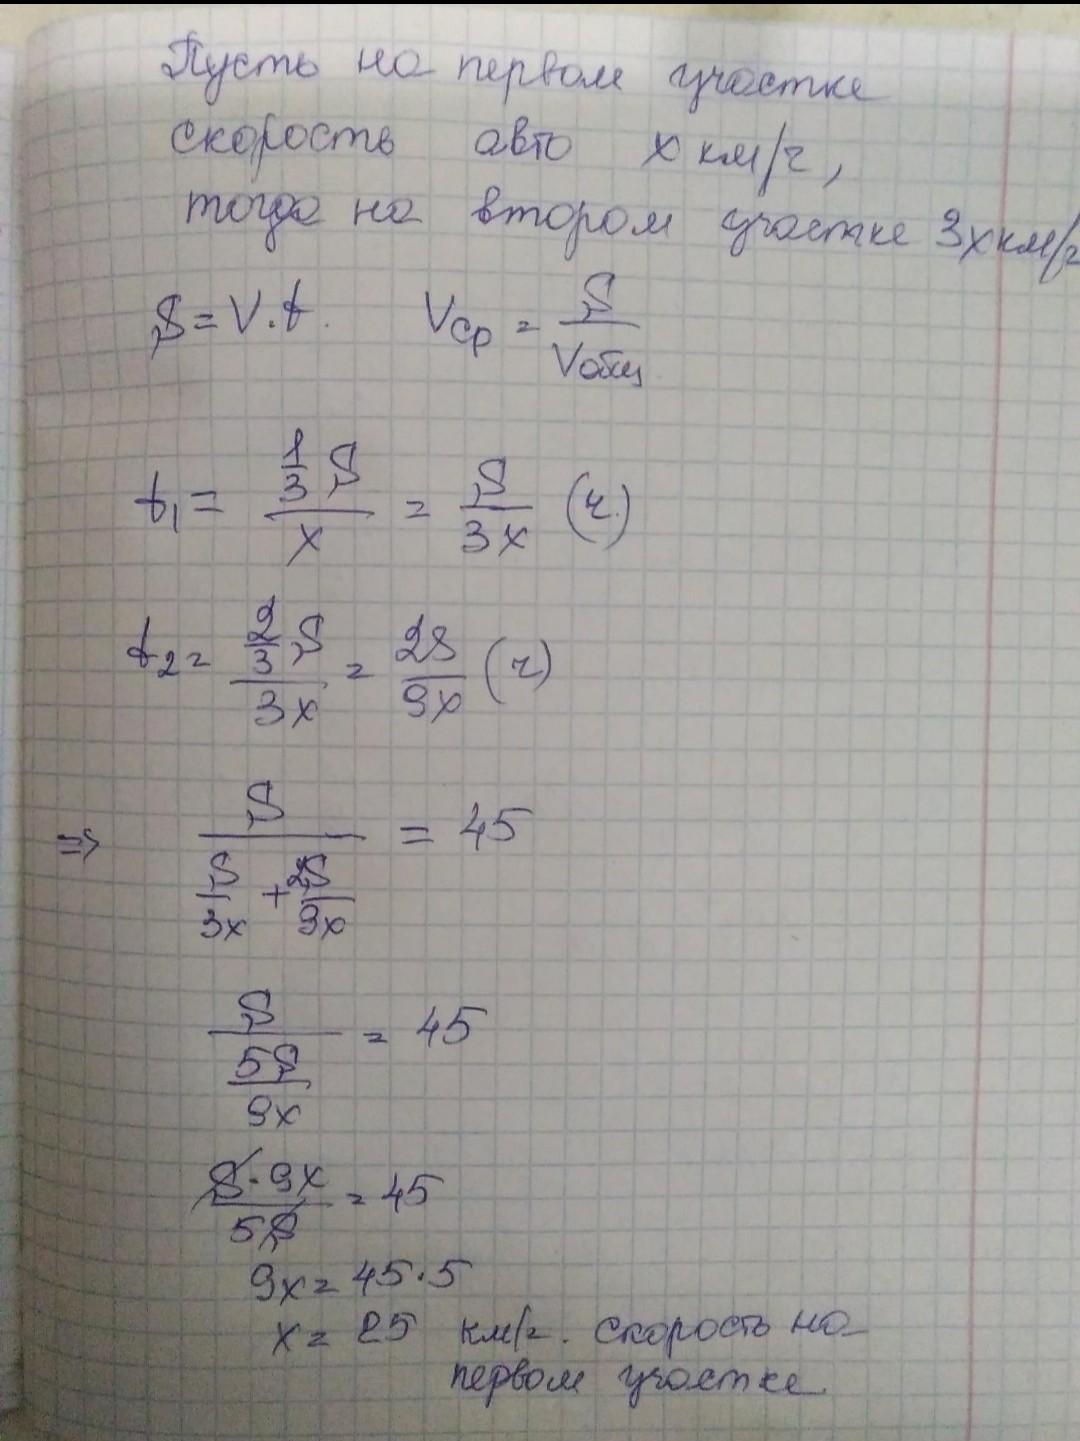 Пусть на первом участке
скорость авто x км/ч,
тогда на втором участке 3x км/ч
S = V·t. Vср = S/Vобщ
t₁ = (1/3 S)/x = S/3x (ч.)
t₂ = (2/3 S)/3x = 2S/9x (ч)
⇒ S/(S/3x + 2S/9x) = 45
S/(5S/9x) = 45
S·9x/5S = 45
9x = 45·5
x = 25 км/ч. скорость на
первом участке.